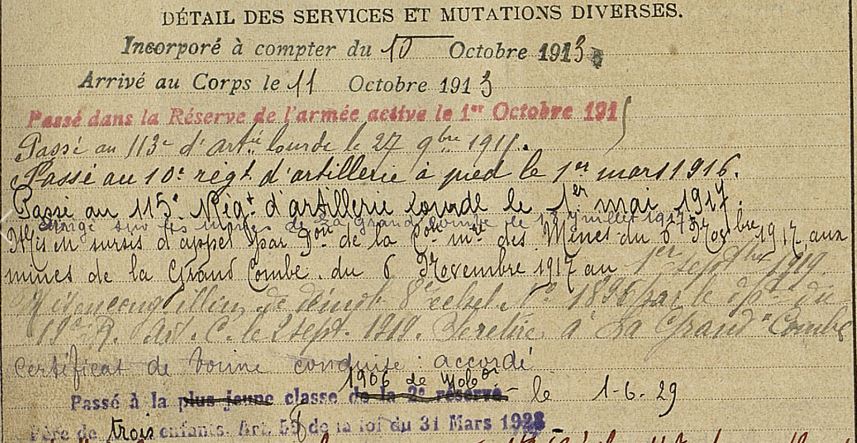 DÉTAIL DES SERVICES ET MUTATIONS DIVERSES.
Incorporé à compter du 10 Octobre 1913
Arrivé au Corps le 11 Octobre 1913
Passé dans la Réserve de l'armée active le 1er Octobre 1915
Passé au 113e d'artie lourde le 27 9bre 1915.
Passé au 10e régt d'artillerie à pied le 1er mars 1916.
Passé au 115e Régt d'artillerie Lourde le 1er mai 1917.
sur les mines de La Grand Combe le 13 juillet 1917
Mis en sursis d'appel par don de la Con des Mines du 6 Novbre 1917 aux
mines de la Grand Combe. du 6 Novembre 1917 au 1er septbre 1919.
Mis en congé illim. de démob. 8e échel. No 1836 par le dépôt du
19e R. Art. C. le 2 sept. 1919. Se retire à La Grand Combe
Certificat de bonne conduite accordé
1906 de mobon
Passé à la plus jeune classe de la 2e réserve le 1-6-29
Père de trois enfants. Art. 58 de la loi du 31 Mars 1928